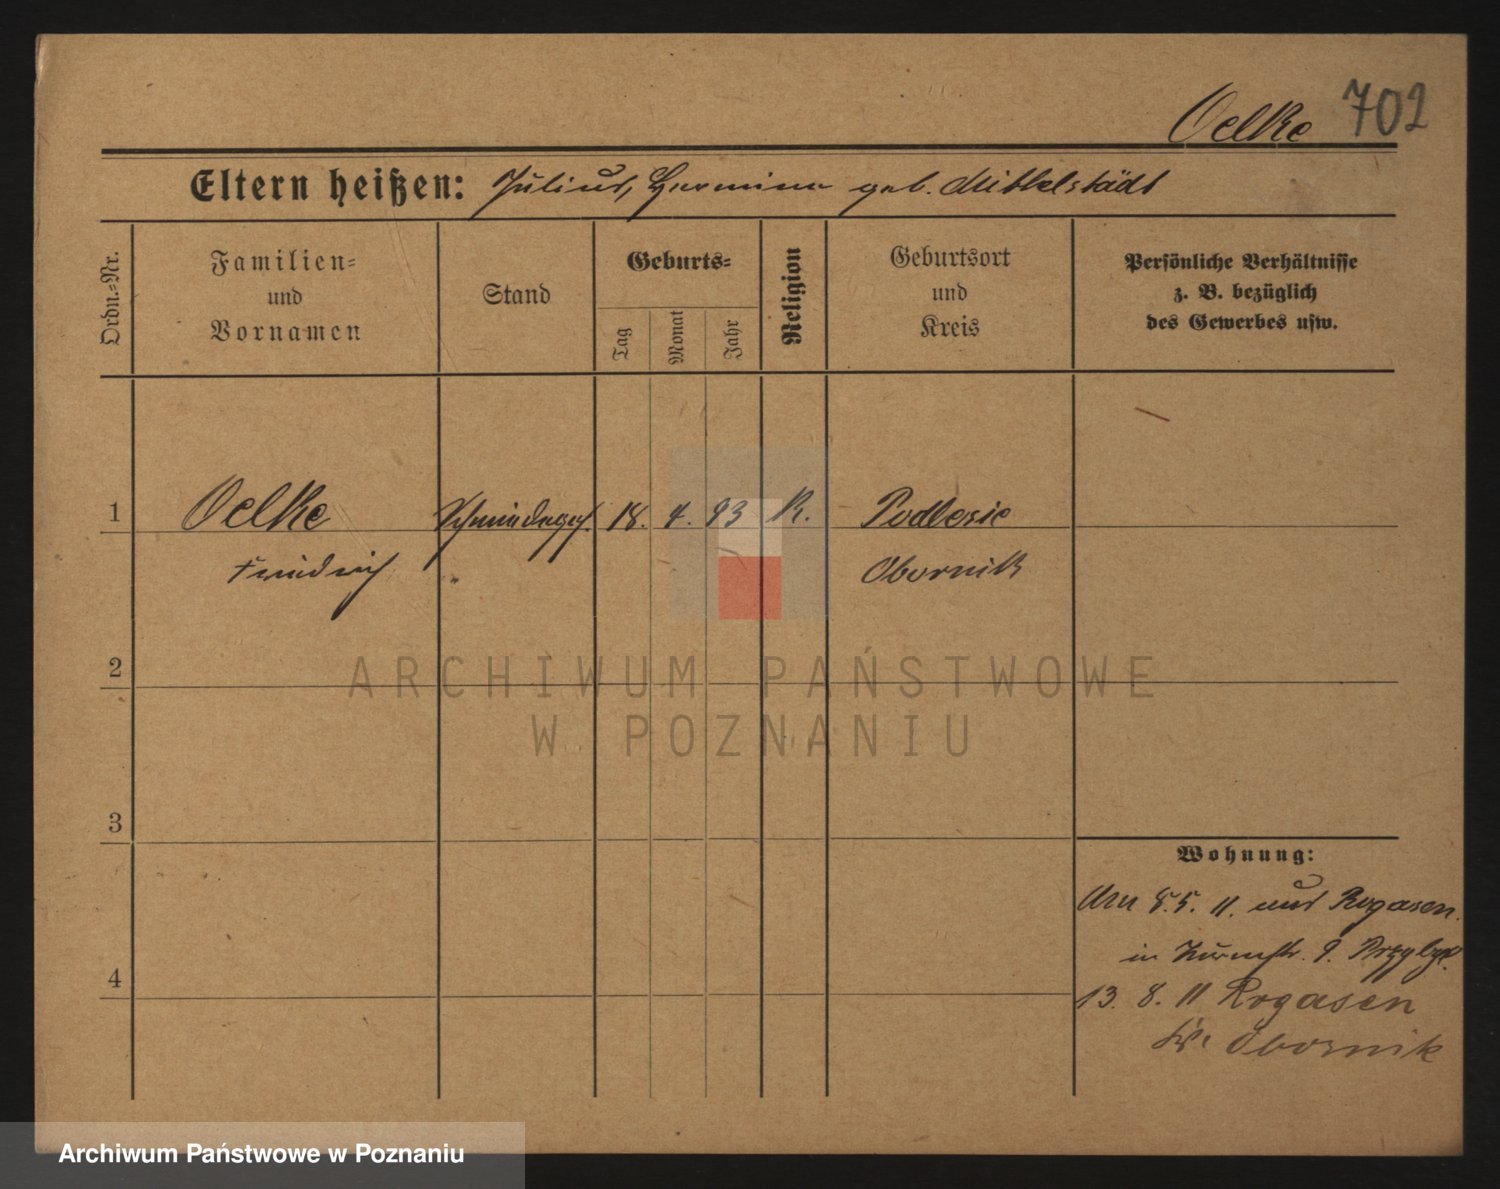 Oelke 702
Eltern heißen: Julius, Hermine geb. Mittelstädt
Ordn.=Nr.
Familien=
und
Vornamen
Stand
Geburts=
Tag
Monat
Jahr
Religion
Geburtsort
und
Kreis
Persönliche Verhältnisse
z. B. bezüglich
des Gewerbes usw.
1 Oelke Schmiedeges. 18. 4. 93 K. Podlesie
Friedrich Obornik
2
ARCHIWUM PAŃSTWOWE
W POZNANIU
3
Wohnung:
Am 8.5. 11. aus Rogasen.
in Turmstr. 9.
4
13. 8. 11 Rogasen
Kr. Obornik
Archiwum Państwowe w Poznaniu